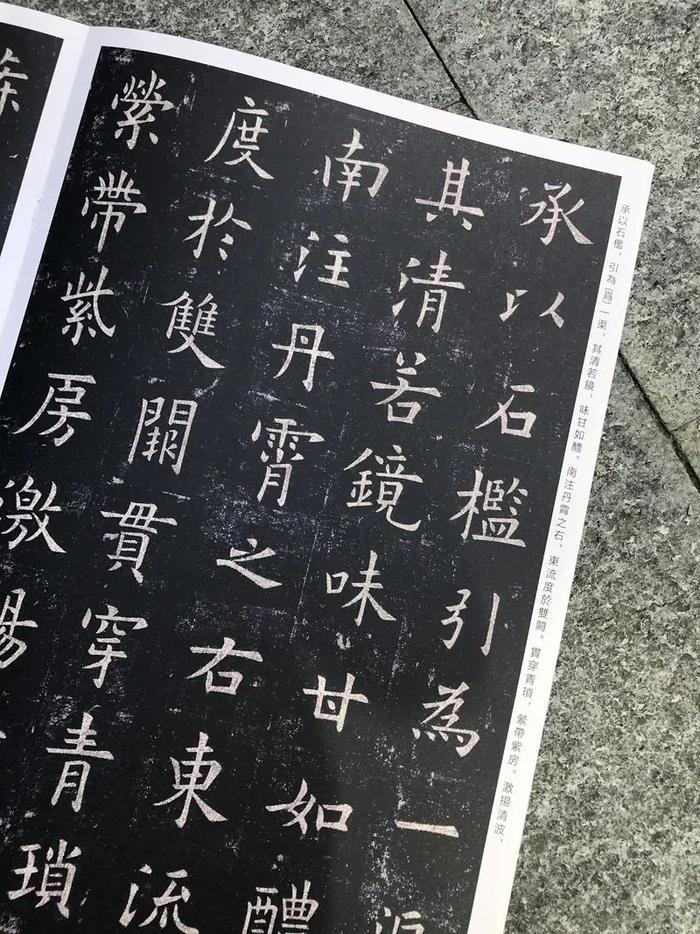 承以石檻，引為(爲)一渠，其清若鏡，味甘如醴。南注丹霄之石，東流度於雙闕。貫穿青瑣，縈帶紫房。激揚清波，
承以石檻引為一
其清若鏡味甘如醴
南注丹霄之右東流
度於雙闕貫穿青瑣
縈帶紫房激揚